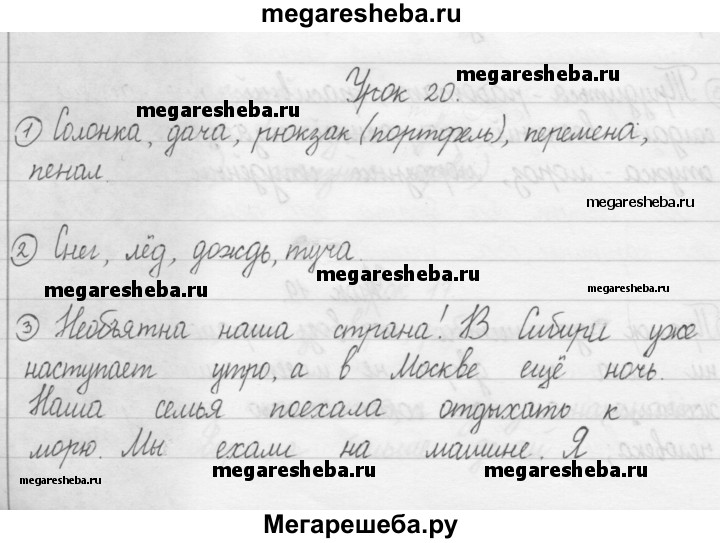 megaresheba.ru
Урок 20.
megaresheba.ru
megaresheba.ru
① Солонка, дача, рюкзак (портфель), перемена,
пенал.
megaresheba.ru
② Снег, лёд, дождь, туча.
megaresheba.ru
megaresheba.ru
megaresheba.ru
③ Необъятна наша страна! В Сибири уже
наступает утро, а в Москве ещё ночь.
Наша семья поехала отдыхать к
морю. Мы ехали на машине. Я
megaresheba.ru
megaresheba.ru
megaresheba.ru
Мегарешеба.ру